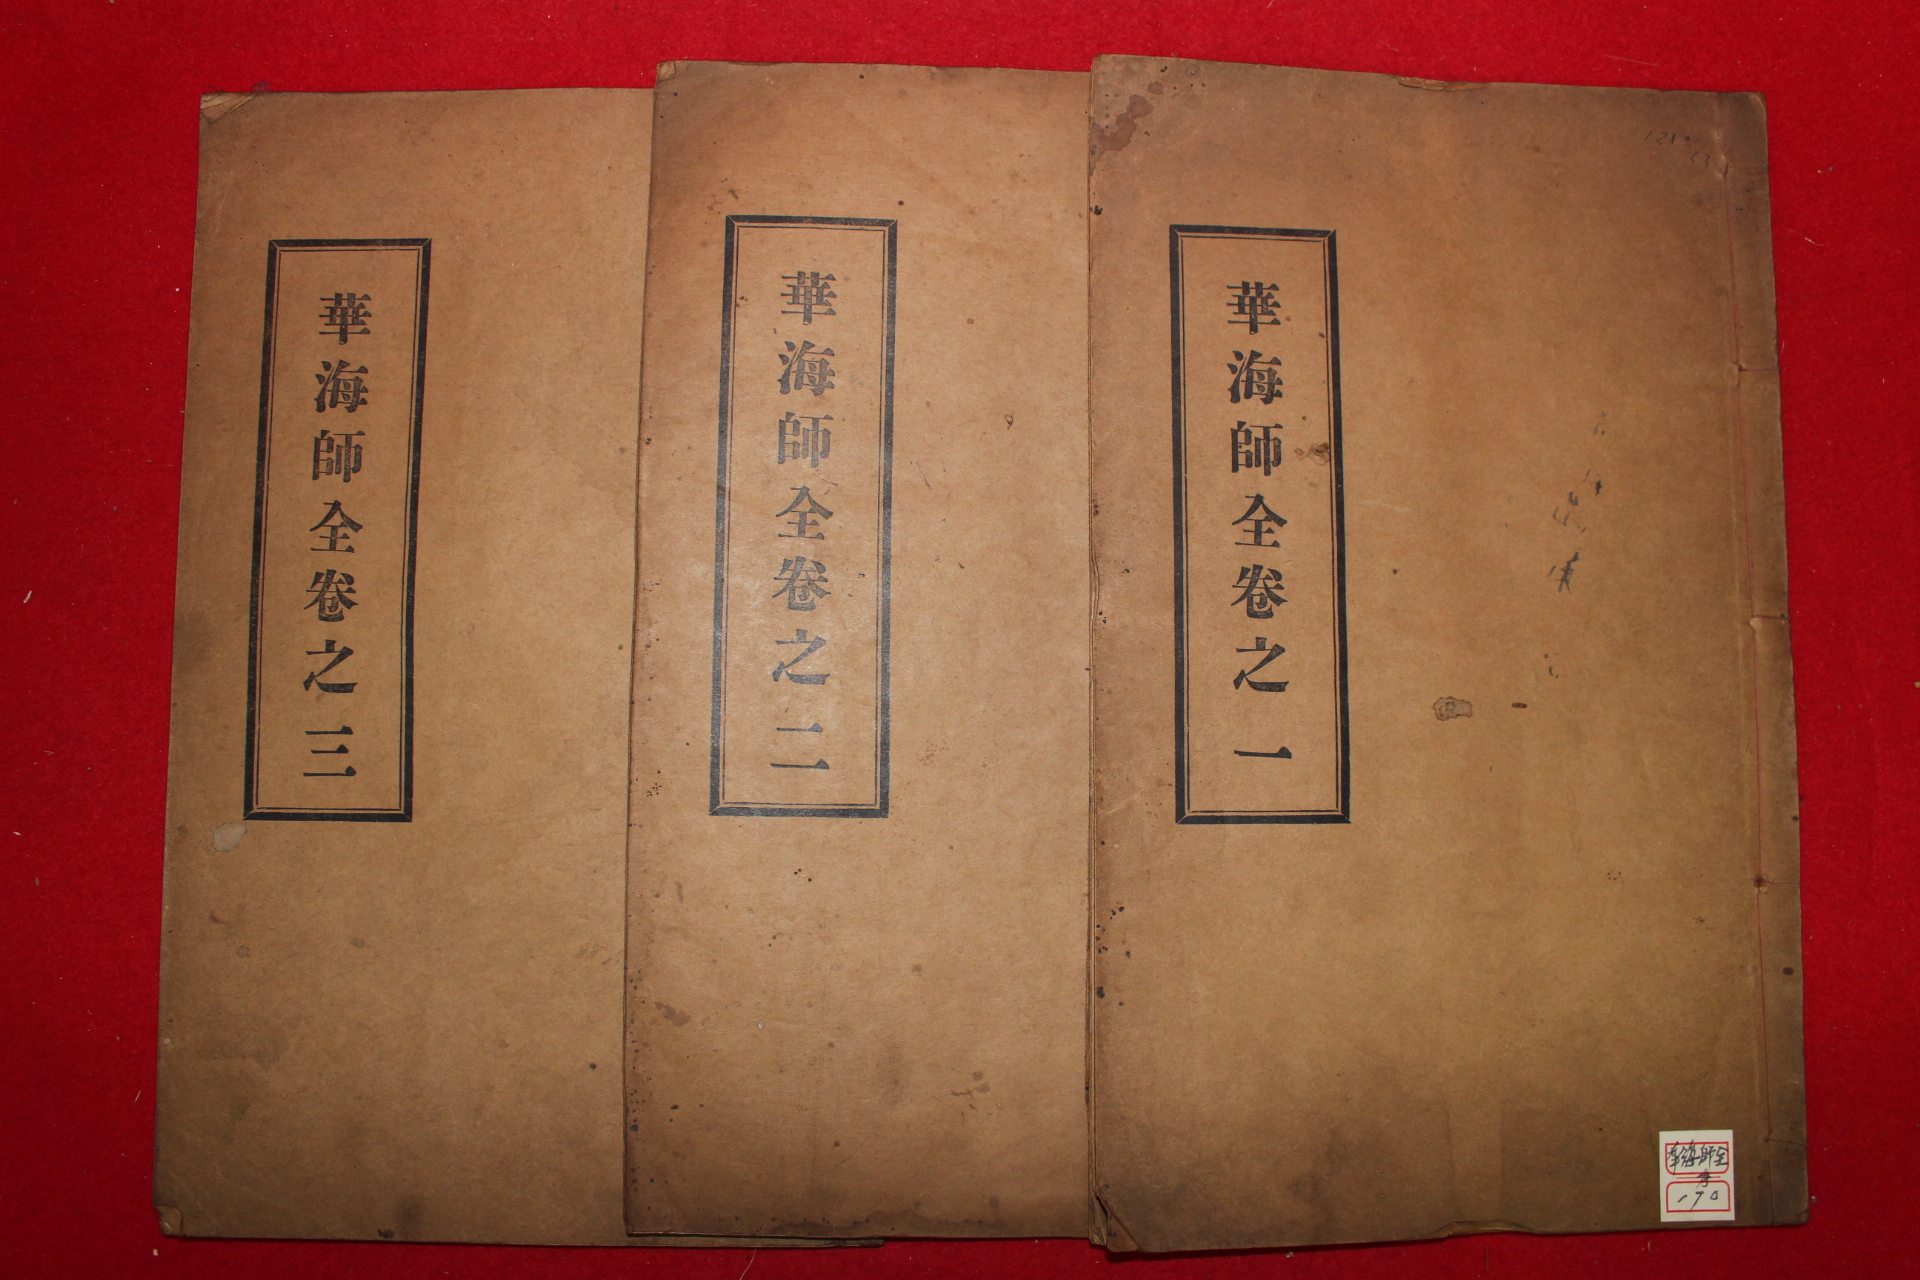 華海師全卷之一
華海師全卷之二
華海師全卷之三
華海師全